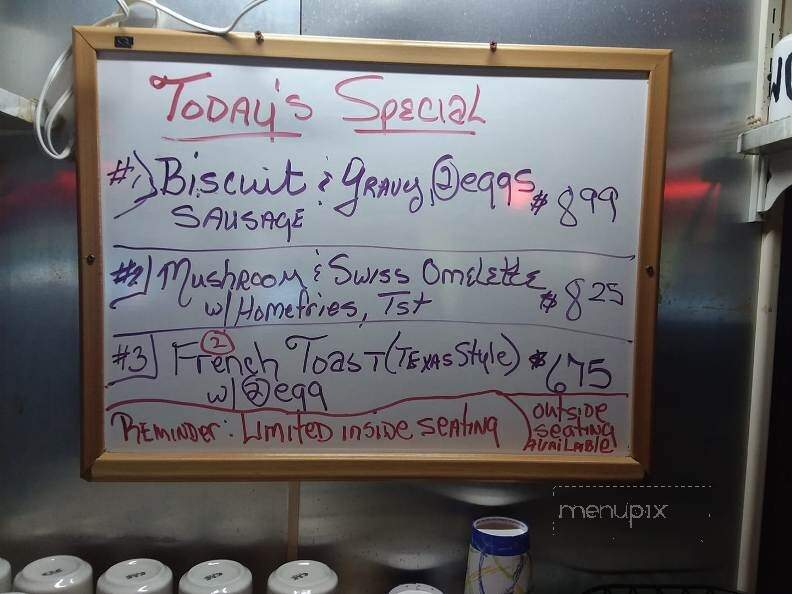 TODAY'S SPECIAL
#1) Biscuit & Gravy, ② eggs $8.99
SAUSAGE
#2) Mushroom & Swiss Omelette $8.25
w/ Homefries, Tst
#3) ② French Toast (Texas Style) $6.75
w/ ② egg
Reminder: Limited inside seating
outside
seating
AVAILABLE
menupix